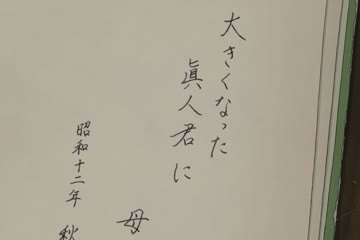 大きくなった
眞人君に
昭和十二年 秋
母